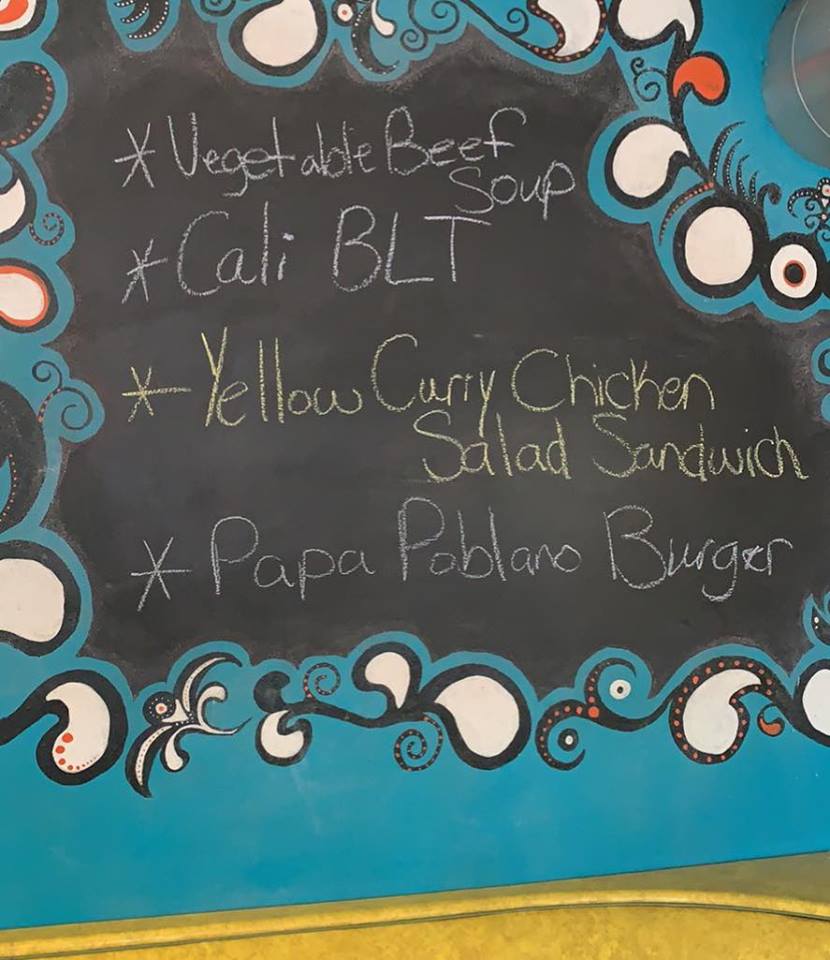 * Vegetable Beef
Soup
* Cali BLT
* Yellow Curry Chicken
Salad Sandwich
* Papa Poblano Burger